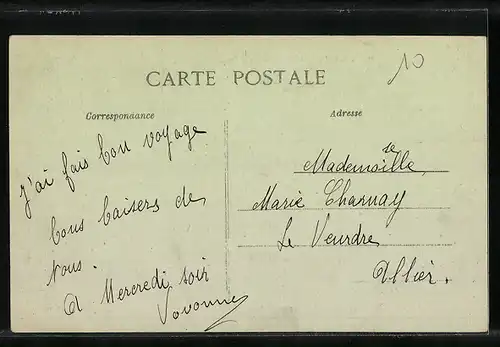 10
CARTE POSTALE
Correspondance
J'ai fais bon voyage
bons baisers de
nous.
A Mercredi soir
Yvonne
Adresse
Mademoiselle
Marie Charnay
Le Veurdre
Allier.